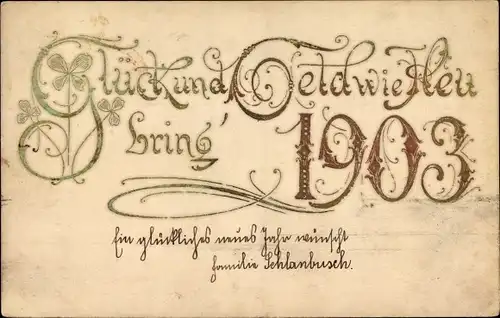 Glück und Geld wie Heu
bring' 1903
Ein glückliches neues Jahr wünscht
Familie Schlanbusch.